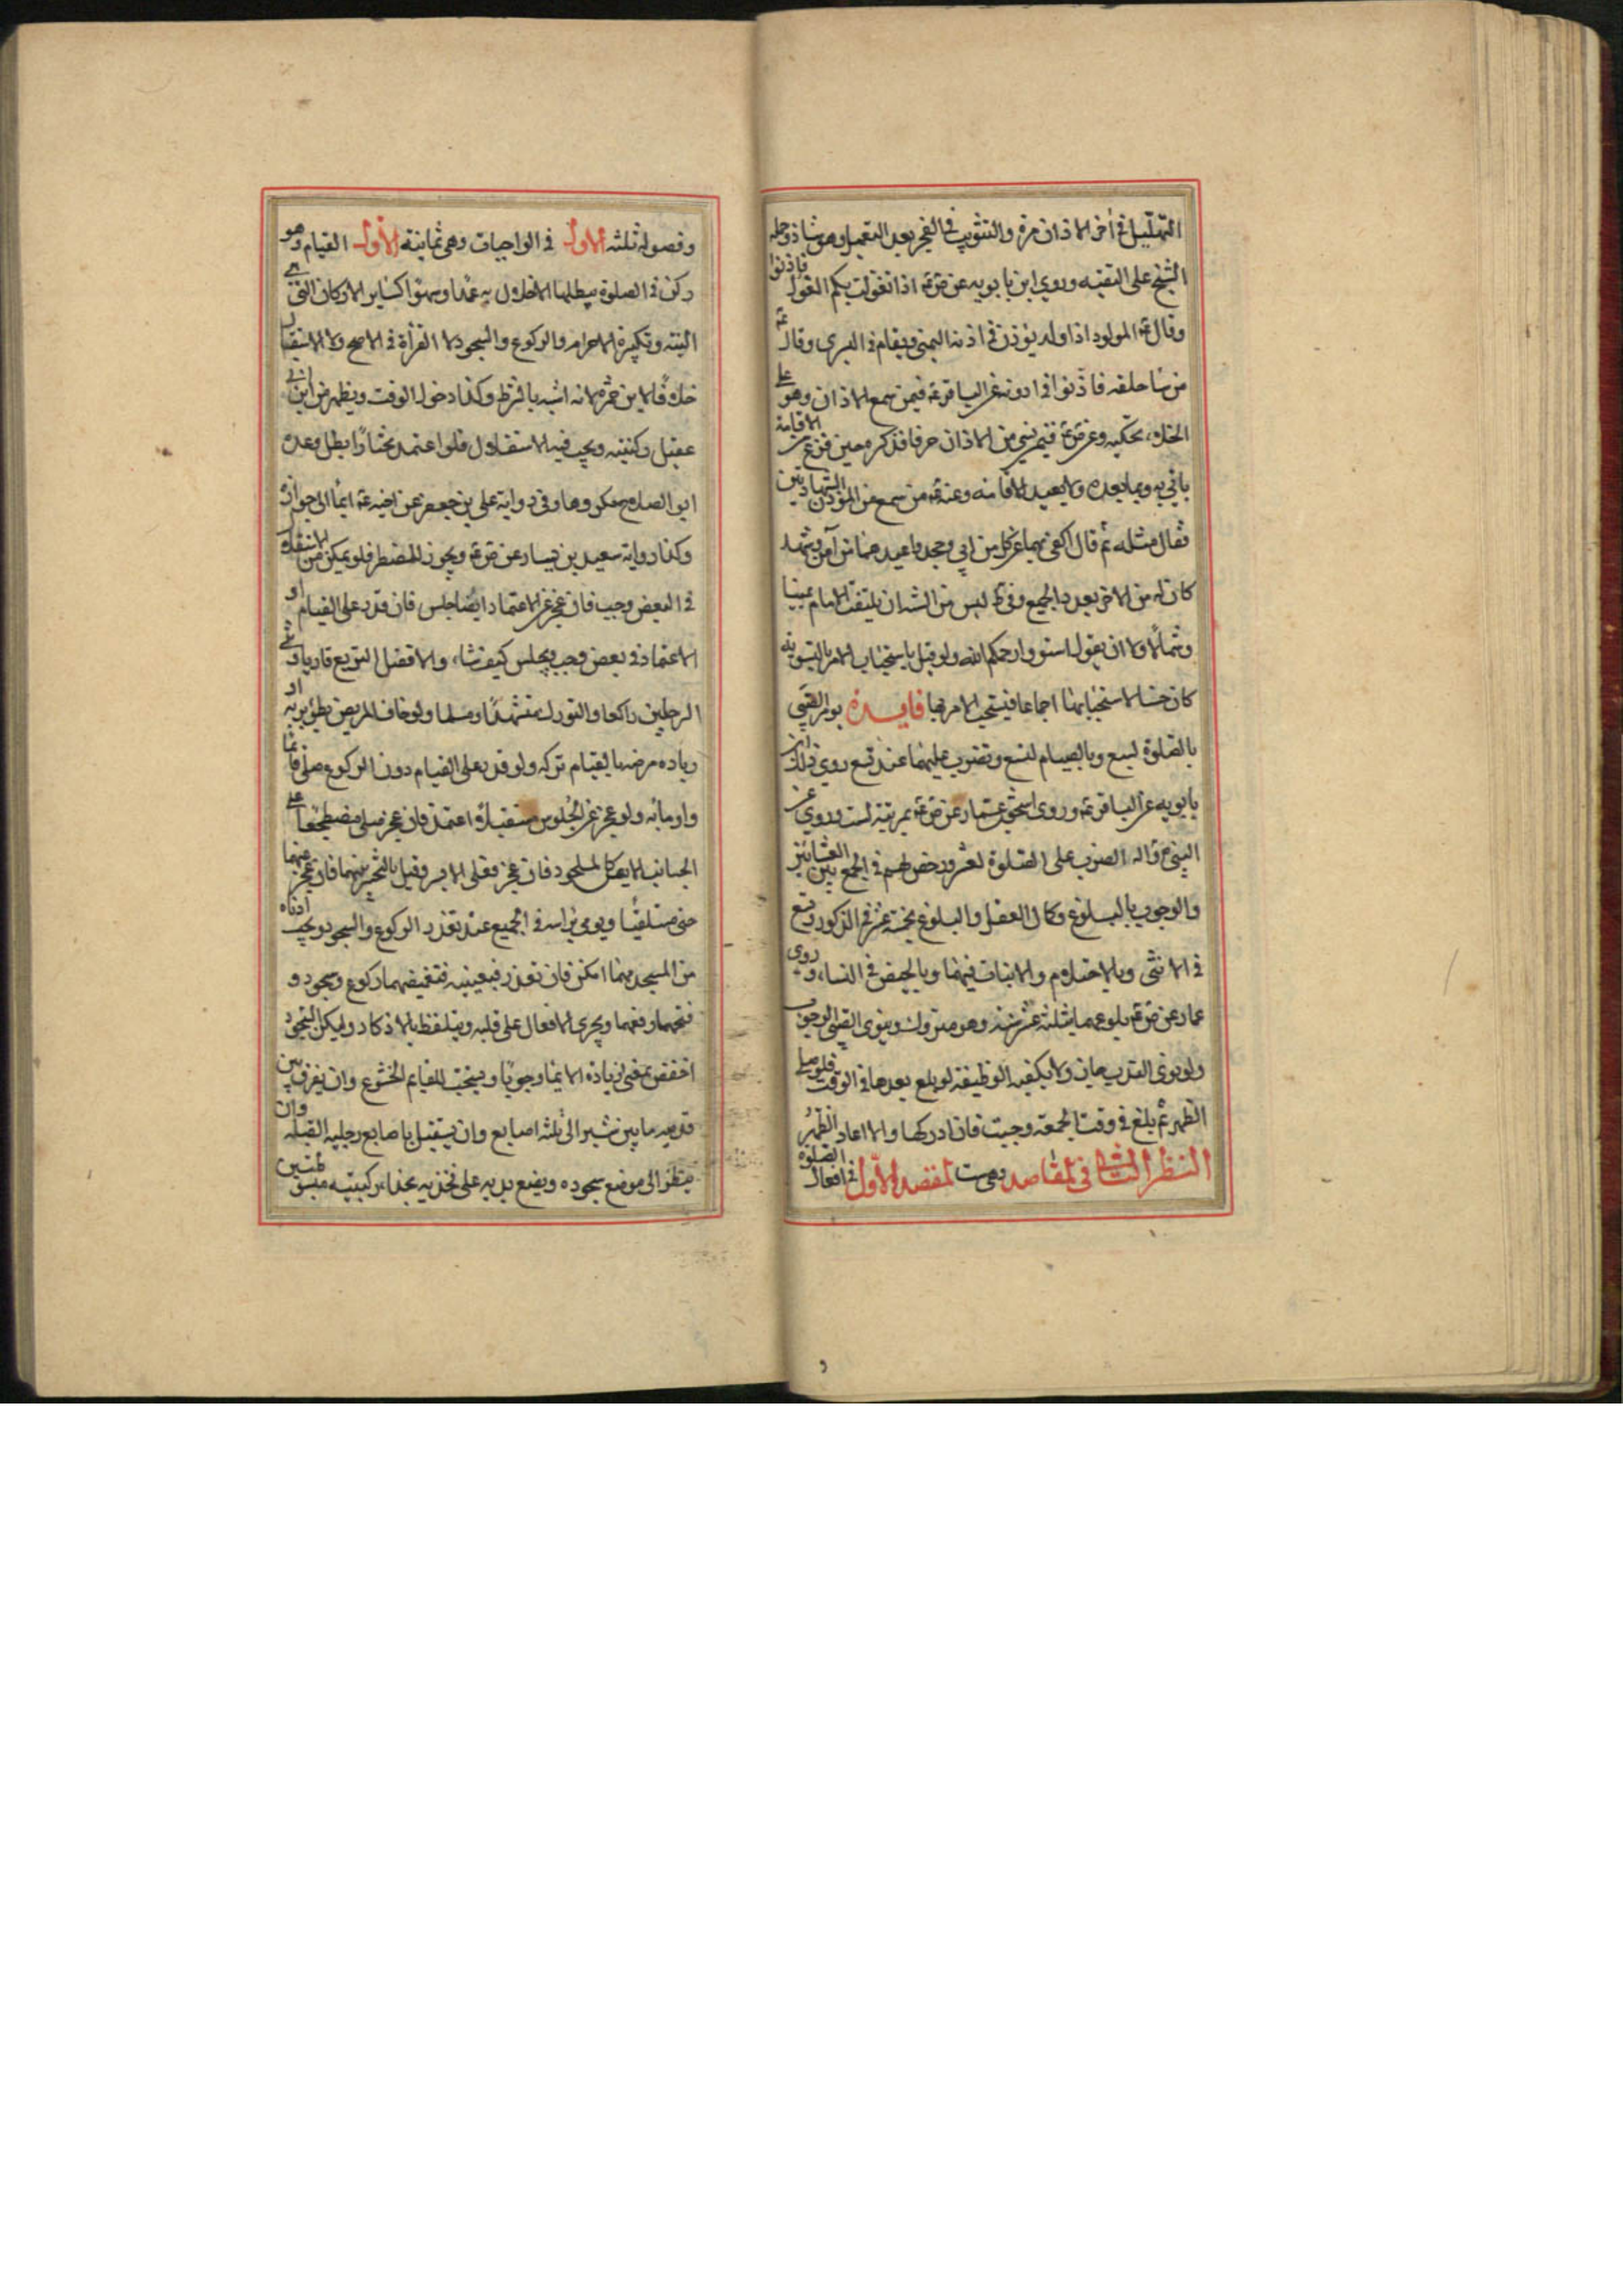 التهليل في أخر الاذان مرة والتثويب في الفجر بعد التعميل وهو شاذ وحمله
الشيخ على التقيه وروي ابن بابويه عن ص ع اذا تغولت بكم الغول فاذنوا
وقال ع المولود اذا ولد يوذن في اذنه اليمنى ويقام في اليسرى وقال ع
من ساء خلقه فاذنوا في اذنه عن الباقر ع فيمن سمع الاذان وهو على
الخلاء يحكيه وعن ص ع فيمن نسي من الاذان حرفا فذكره حين فرغ من الاقامة
ياتي به وبما بعده ولا يعيد الاقامه وعنه ع من سمع من المؤذن الشهادتين
فقال مثله ثم قال اكفي بهما عن كل من ابي وجحد واعين بهما من آمن وشهد
كان له من الاجر بعدد الجميع وفي ط ليس من السنة ان يلتفت الامام يمينا
وشمالا ولا ان يقول استووا رحمكم الله ولو قيل باستحباب الامر بالتسويه
كان حسنا لاستحبابها اجماعا فيستحب الامر بها فايدة يومر الصبي
بالصلوة لسبع وبالصيام لتسع وتضرب عليهما عند تسع روي ذلك ابن
بابويه عن الباقر ع وروي اسحق بن عمار عن ص ع تمرينه لست وروي عن
النبي ص واله الضرب على الصلوة لعشر ورخص لهم في الجمع بين العشائين
والوجوب بالبلوغ وكمال العقل والبلوغ بخمسة عشر في الذكور وتسع
في الانثى وبالاحتلام والانبات فيهما وبالحيض في النساء وروى
عمار عن ص ع بلوعهما بثلثة عشر سنة وهو متروك وينوي الصبي الوجوب
ولو نوى الندب جاز ولا يكفيه الوظيفة لو بلغ بعدها في الوقت فلو صلى
الظهر ثم بلغ في وقت الجمعة وجبت فان ادركها والا اعاد الظهر
النظر الثاني في المقاصد وهي ست المقصد الأول في افعال الصلوة
وفصوله ثلثه الاول في الواجبات وهي ثمانية الأول القيام وهو
ركن في الصلوة يبطلها الاخلال به عمدا وسهوا كسائر الاركان التي هي
النية وتكبيرة الاحرام والركوع والسجود لا القرأة في الاصح ولا الاستقبال
خلافا لابن حمزه لانه اشبه بالشرط وكذا دخول الوقت ويظهر من ابن ابي
عقيل ركنيته ويجب فيه الاستقلال فلو اعتمد مختارا بطل وعده
ابو الصلاح مكروها وفي رواية علي بن جعفر عن اخيه ع ايما الى جوازه
وكذا رواية سعيد بن يسار عن ص ع ويجوز للمضطر فلو تمكن من الاستقلال
في البعض وجب فان عجز عن الاعتماد ايضا جلس فان قدر على القيام او
الاعتماد في بعض وجب ويجلس كيف شاء والافضل التربع قاريا وثني
الرجلين راكعا والتورك متشهدا ومسلما ولو خاف المريض بطؤ برئه او
زيادة مرضه بالقيام تركه ولو قدر على القيام دون الركوع صلى قائما
واوما به ولو عجز عن الجلوس مستقبلا اعتمد فان عجز صلى مضطجعا على
الجانب الايمن كالملحود فان عجز فعلى الايسر وقيل بالتخيير بينهما فان عجز عنهما
صلى مستلقيا ويومي براسه في الجميع عند تعذر الركوع والسجود ويجب ادناه
من المسجد مهما امكن فان تعذر فبعينيه فتغميضهما ركوع وسجود و
فتحهما رفعهما ويجري الافعال على قلبه ويتلفظ بالاذكار وليكن السجود
اخفض بمعنى زيادة الايماء وجوبا ويستحب للقايم الخشوع وان يفرق بين
قدميه ما بين شبر الى ثلثه اصابع وان يستقبل باصابع رجليه القبله وان
ينظر الى موضع سجوده ويضع يديه على فخذيه بحذاء ركبتيه مبسوطتين